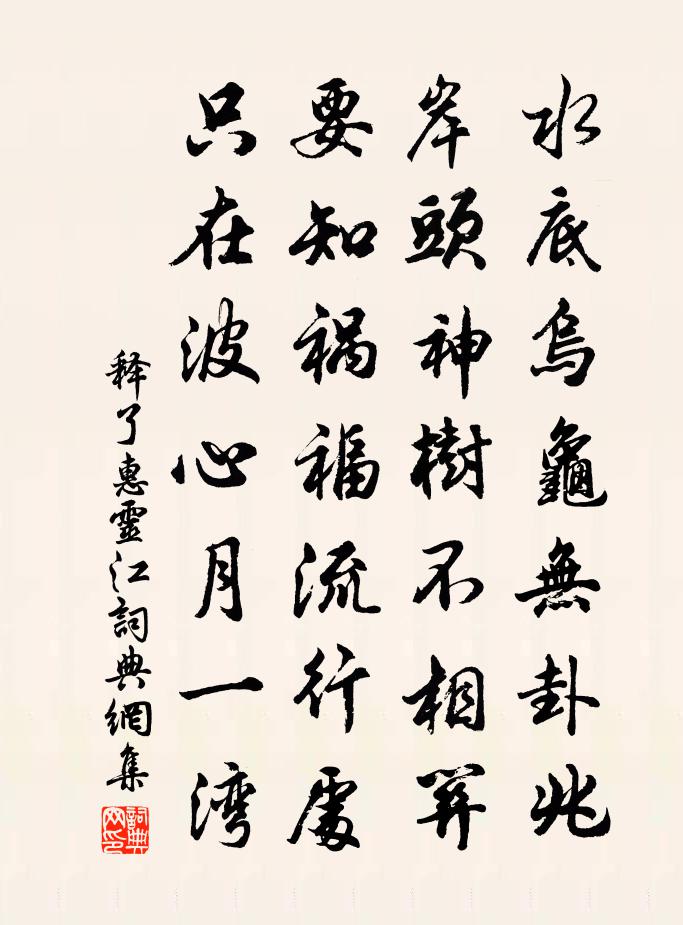 水底烏龜無卦兆
岸頭神樹不相關
要知祸福流行處
只在波心月一湾
释了惠靈江詞典網集
詞典網印